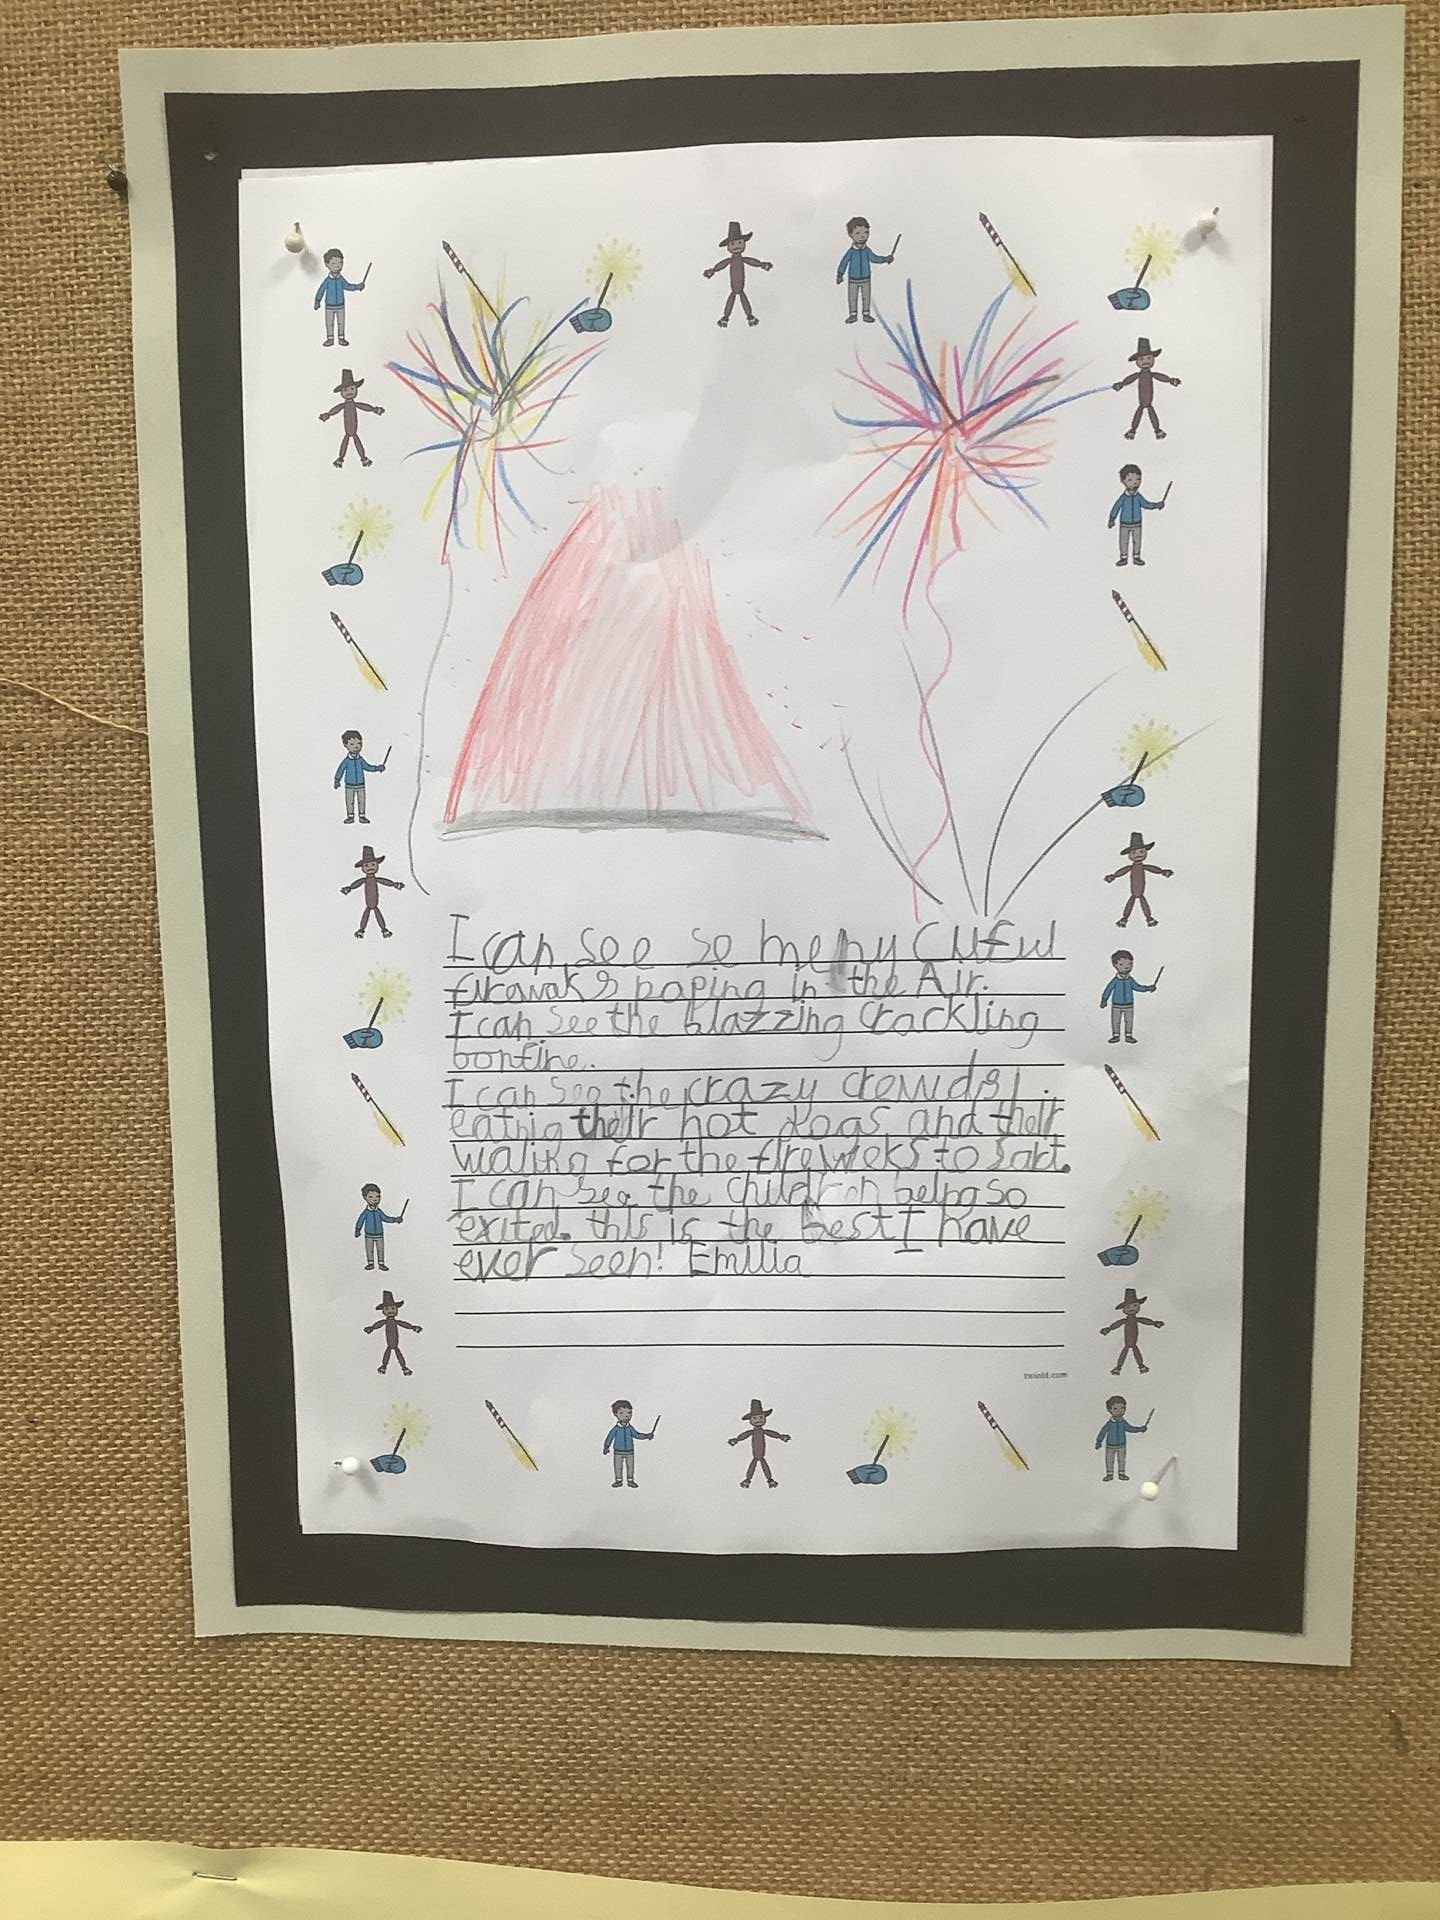 I can see so meny culful
firewaks paping in the Air.
I can see the blazzing crackling
bonfire.
I can see the crazy crowds
eatnig their hot dogs and their
waliting for the fireweks to sart.
I can see the children being so
exited. this is the best I have
ever seen! Emilia
twinkl.com